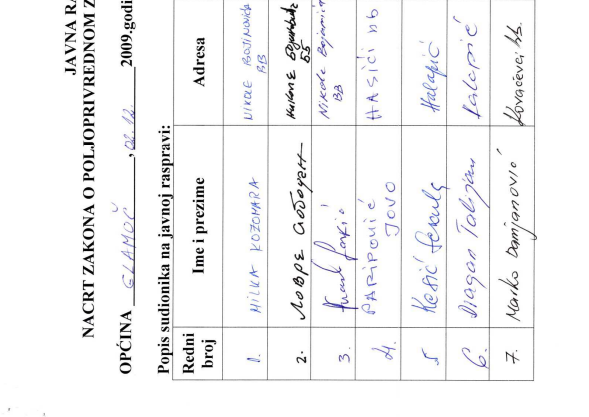 JAVNA RA
NACRT ZAKONA O POLJOPRIVREDNOM Z
OPĆINA GLAMOČ, 02.12. 2009.godi
Popis sudionika na javnoj raspravi:
Redni broj Ime i prezime Adresa
1. MILKA KOZOMARA NIKOLE BOJINOVIĆA BB
2. ЛОВРЕ ББ
3. Nikole BB
4. PARIPOVIĆ JOVO HASIĆI bb
5 Kesić Halapić
6. Dragan Halapić
7. Marko Damjanović Kovačevci bb.